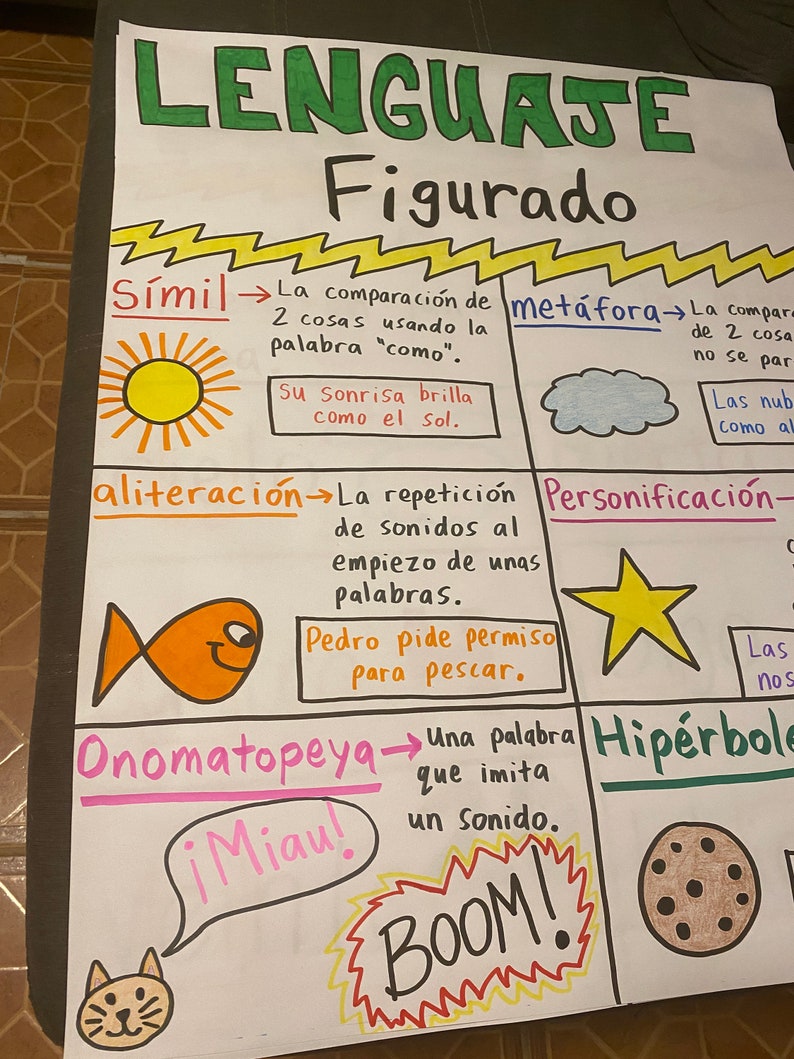 LENGUAJE
Figurado
símil → La comparación de
2 cosas usando la
palabra "como".
Su sonrisa brilla
como el sol.
metáfora → La
de 2
no se
Las
como
aliteración → La repetición
de sonidos al
empiezo de unas
palabras.
Pedro pide permiso
para pescar.
Personificación
Las
nos
Onomatopeya → una palabra
que imita
un sonido.
¡Miau!
BOOM!
Hipérbole